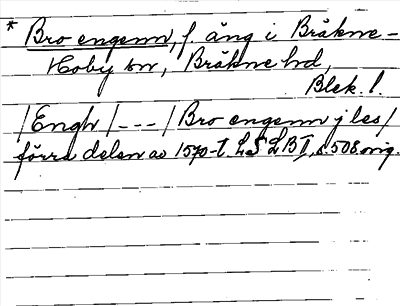 * Bro engenn, f. äng i Bräkne-
Hoby sn, Bräkne hd,
Blek. l.
/Engh/---/Bro engenn j les/
förra delen av 1570-t. LSLB II, s 508 orig.